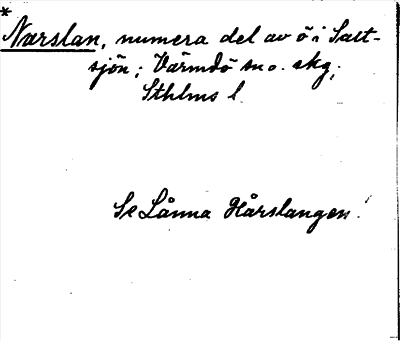 *
Narslan, numera del av ö i Salt-
sjön; Värmdö sn o. skg,
Sthlms l.
Se Lånna Hårslangen!